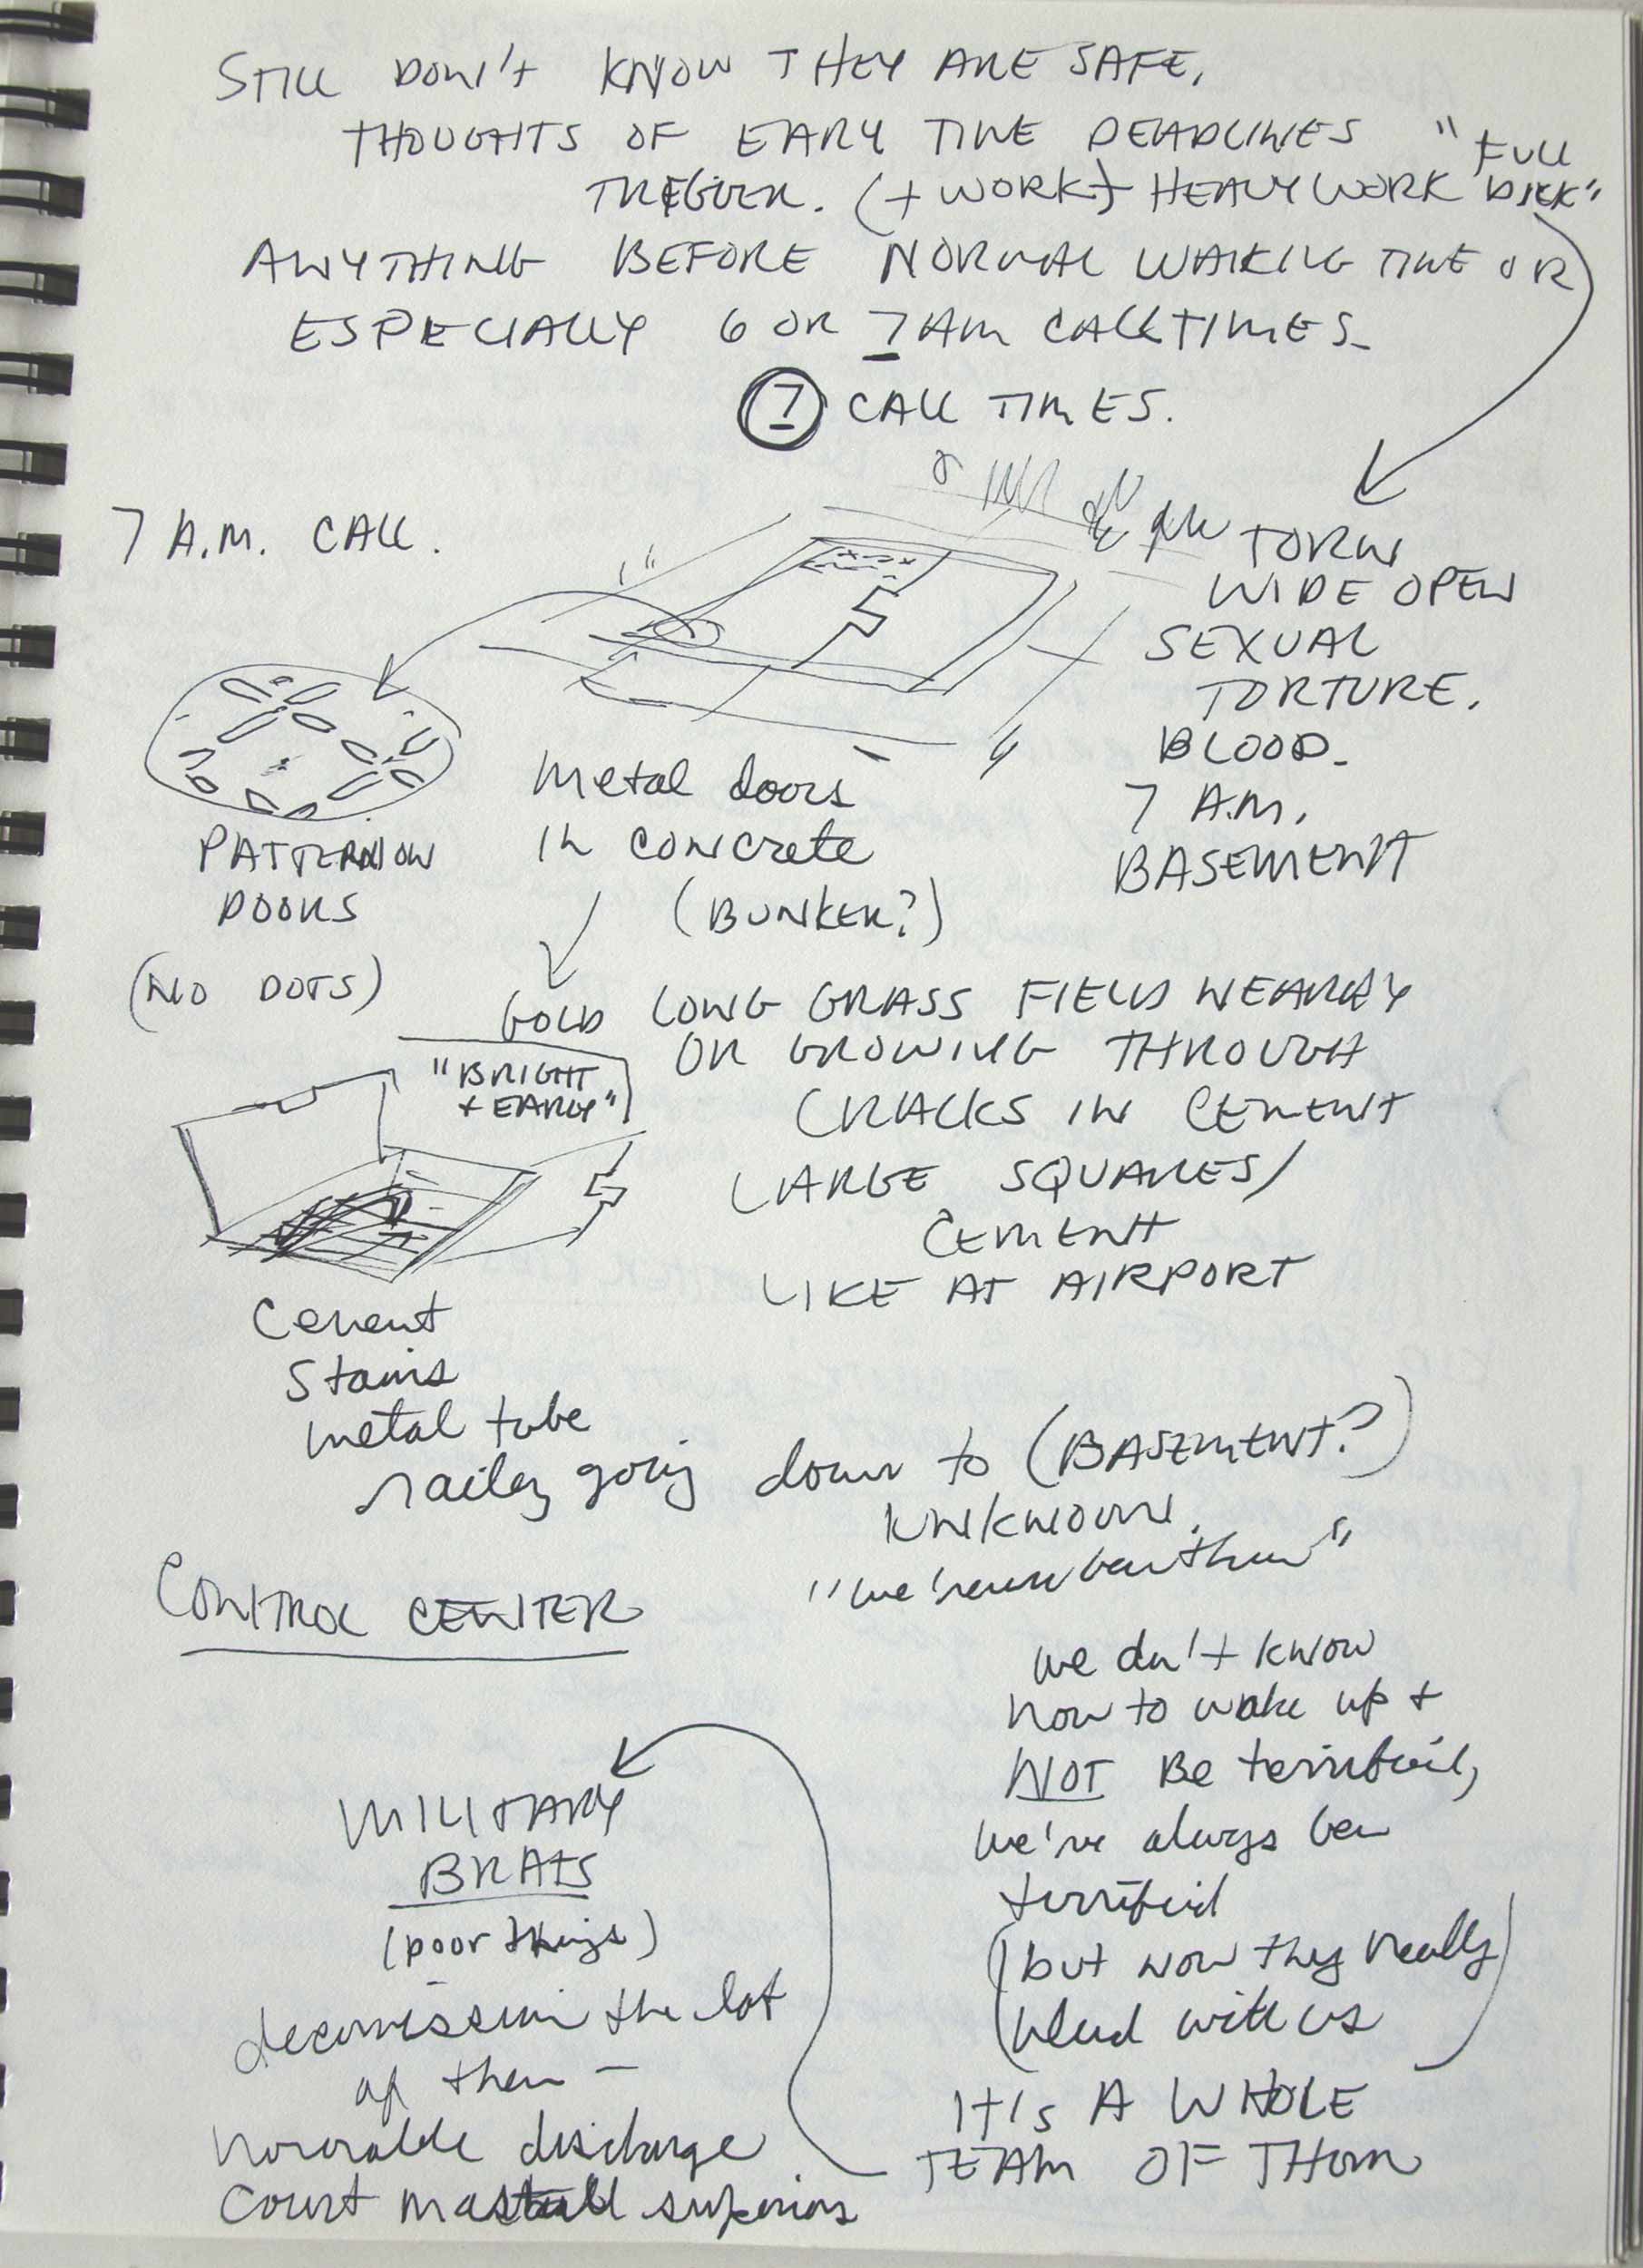 STILL DON'T KNOW THEY ARE SAFE,
THOUGHTS OF EARY TIME DEADLINES "FULL
TRIGGER. (+ WORK) + HEAVY WORK DISK"
ANYTHING BEFORE NORMAL WAKING TIME OR
ESPECIALLY 6 OR 7 AM CALLTIMES.
7 CALL TIMES.
7 A.M. CALL.
TORN
WIDE OPEN
SEXUAL
TORTURE.
BLOOD.
7 A.M.
BASEMENT
PATTERN ON
DOORS
(NO DOTS)
Metal doors
in concrete
(BUNKER?)
GOLD LONG GRASS FIELD NEARBY
OR GROWING THROUGH
CRACKS IN CEMENT
LARGE SQUARES/
CEMENT
LIKE AT AIRPORT
"BRIGHT
+ EARLY"
Cement
Stairs
metal tube
railing going down to (BASEMENT?)
UNKNOWN.
"we been there"
CONTROL CENTER
we don't know
how to wake up +
NOT Be terrified,
we've always been
terrified
(but now they really
blend with us)
IT'S A WHOLE
TEAM OF THEM
MILITARY
BRATS
(poor things)
decomission the lot
of them -
honorable discharge
Court mashall superiors